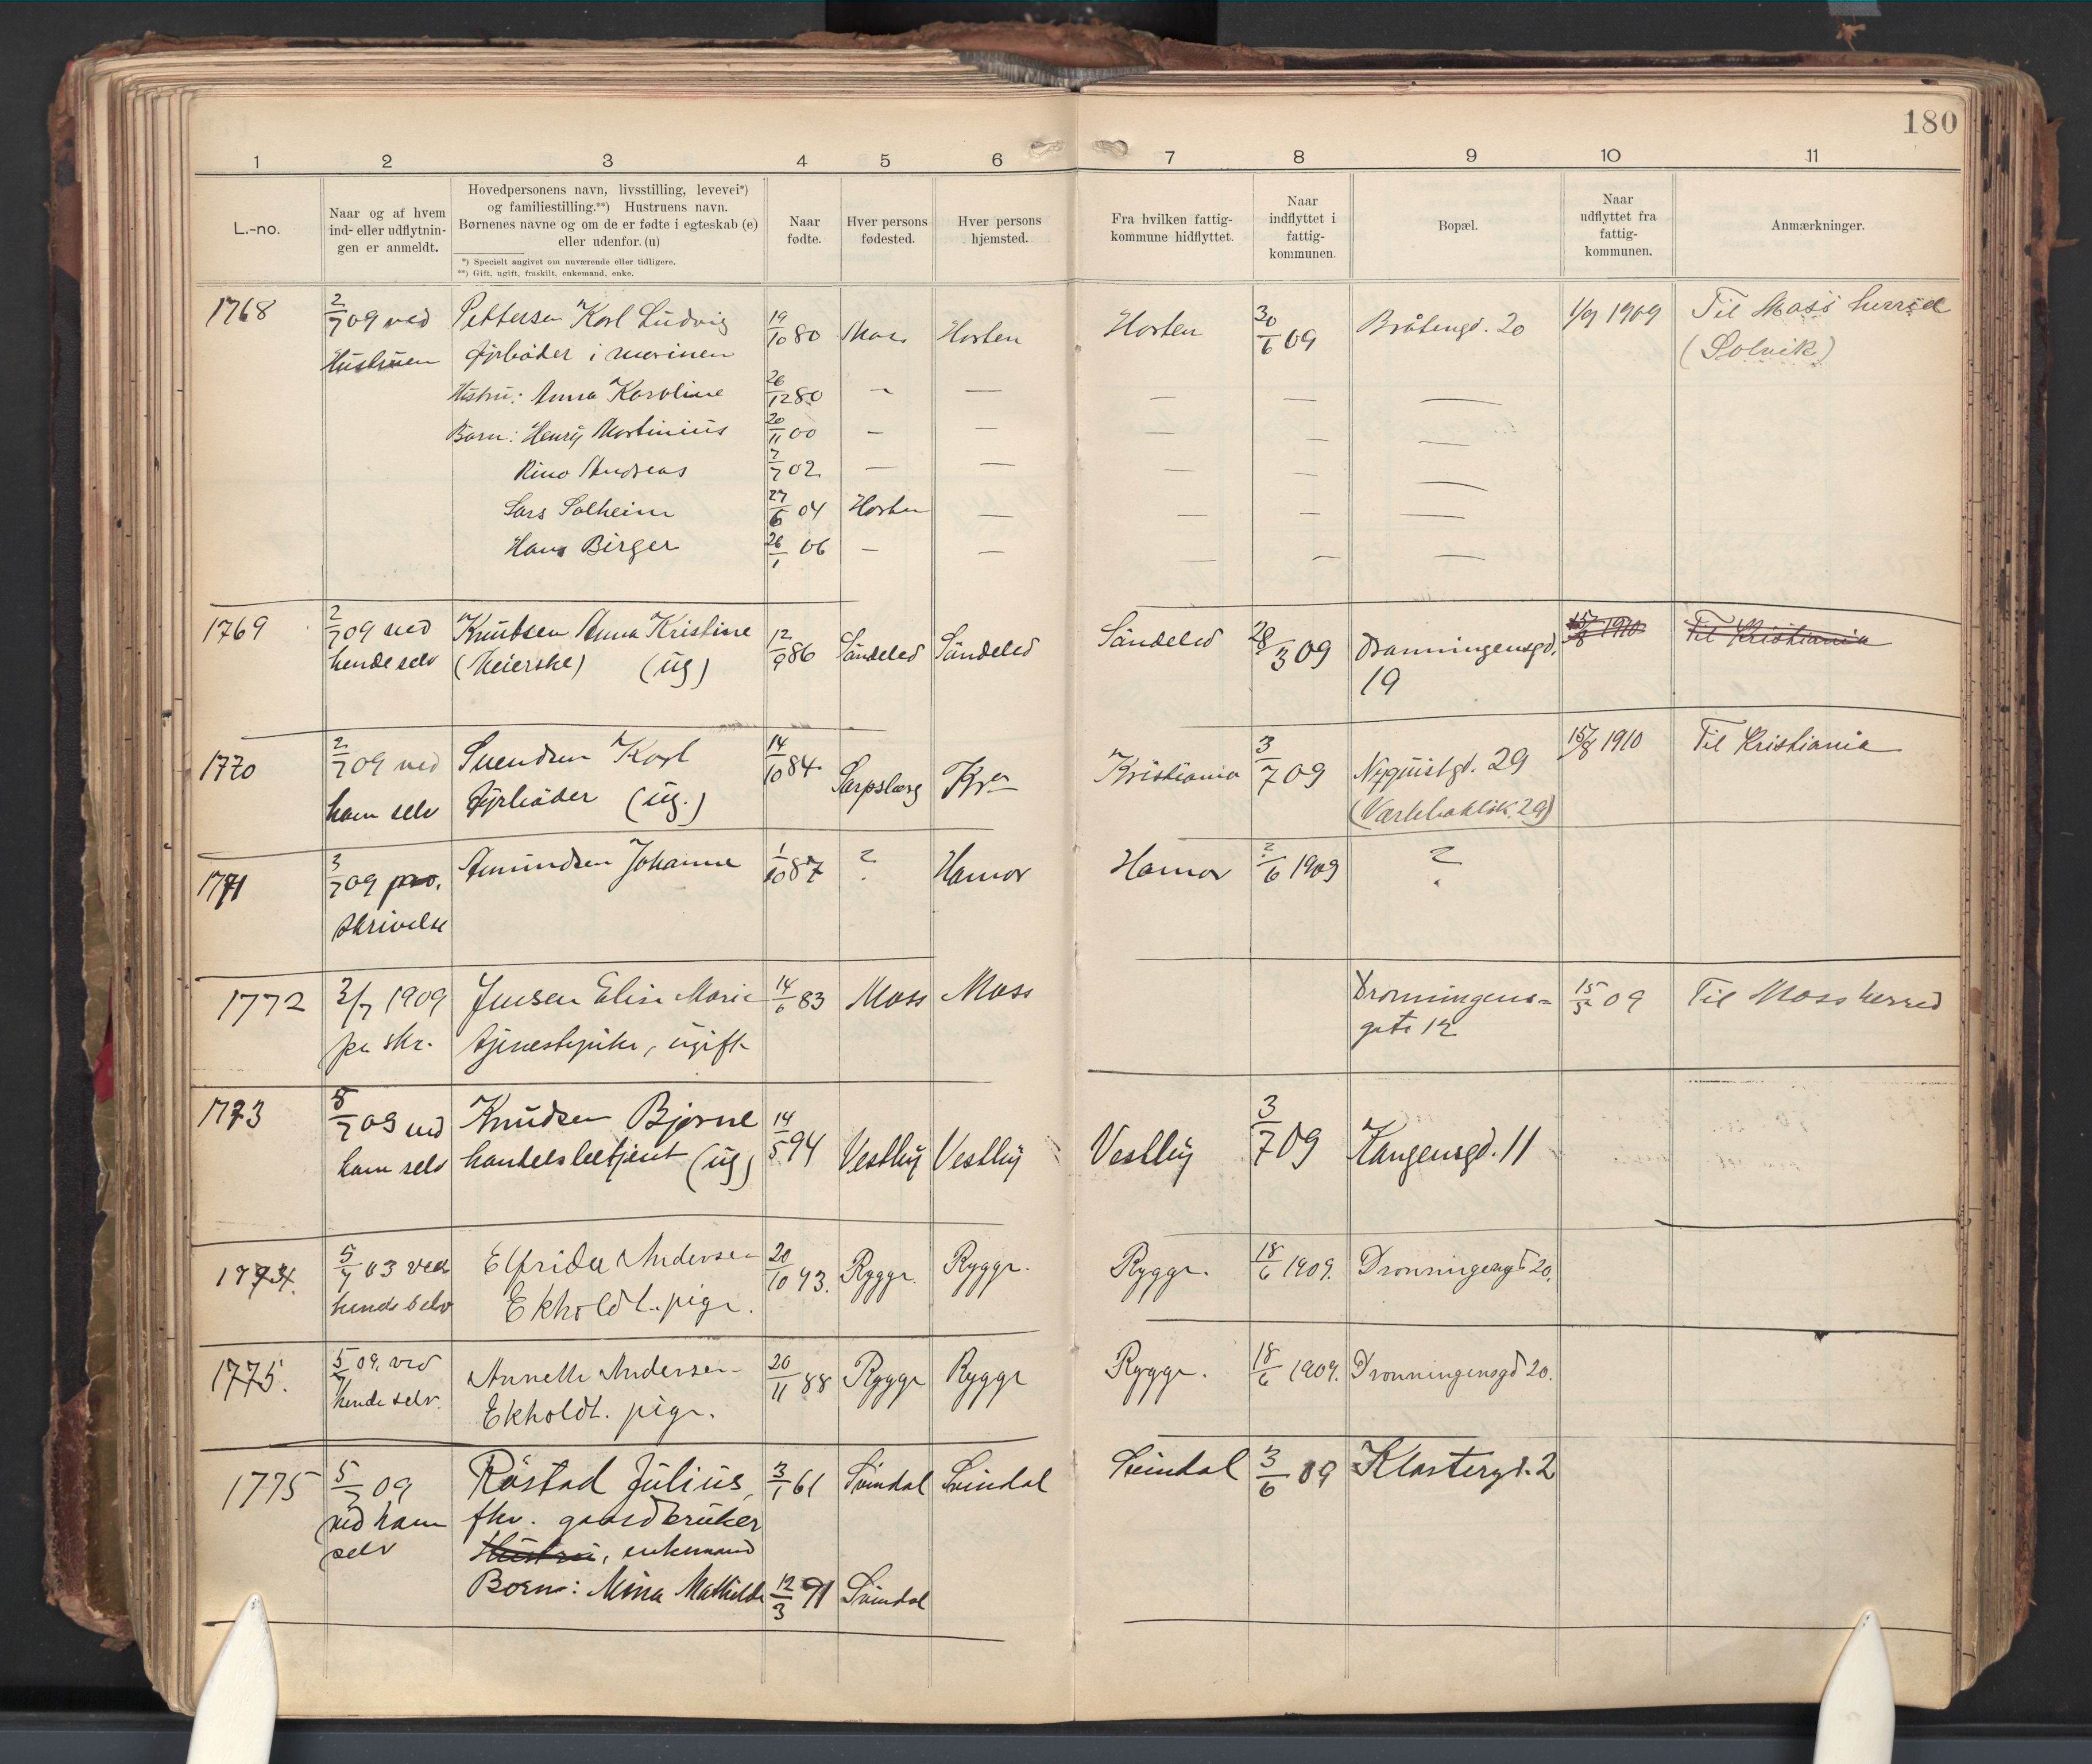 180
1 2 3 4 5 6 7 8 9 10 11
L.-no.
Naar og af hvem
ind- eller udflytnin-
gen er anmeldt.
Hovedpersonens navn, livsstilling, levevei*)
og familiestilling.**) Hustruens navn.
Børnenes navne og om de er fødte i egteskab (e)
eller udenfor. (u)
*) Specielt angivet om nuværende eller tidligere.
**) Gift, ugift, fraskilt, enkemand, enke.
Naar
fødte.
Hver persons
fødested.
Hver persons
hjemsted.
Fra hvilken fattig-
kommune hidflyttet.
Naar
indflyttet i
fattig-
kommunen.
Bopæl.
Naar
udflyttet fra
fattig-
kommunen.
Anmærkninger.
1768 2/7 09 ved Pettersen Karl Ludvig 19/10 80 Moss Horten Horten 30/6 09 Bråtengd. 20 1/9 1909 Til Moss herred
Hustruen fyrbøder i marinen (Solvik)
Hustru: Anna Karoline 26/12 80 — — — — —
Børn: Henry Martinius 20/11 00 — — — — —
Andreas 2/7 02 — — — — —
Lars Solheim 27/6 04 Horten — — — —
Hans Birger 26/1 06 — — — — —
1769 2/7 09 ved Knutsen Anna Kristine 12/9 86 Söndeled Söndeled Söndeled 28/3 09 Dronningensgd. 15/8 1910 Til Kristiania
hende selv (Meierske) (ug) 19
1770 2/7 09 ved Svendsen Karl 14/10 84 Sarpsborg Kra Kristiania 3/7 09 Nyquistgd. 29 15/8 1910 Til Kristiania
ham selv Fyrbøder (ug.)
1771 3/7 09 pr. Amundsen Johanne 1/10 87 ? Hamar Hamar ?/6 1909 ?
skrivelse
1772 3/7 1909 Jensen Elise Marie 14/6 83 Moss Moss Dronningens- 15/5 09 Til Moss herred
pr skr. tjenestepike, ugift gate 12
1773 5/7 09 ved Knudsen Bjarne 14/5 94 Vestby Vestby Vestby 3/7 09 Kongensgd. 11
ham selv handelsbetjent (ug)
1774. 5/7 03 ved Elfrida Andersen 20/10 93. Rygge. Rygge. Rygge. 18/6 1909. Dronningensgd 20.
hende selv Ekholdt. pige.
1775. 5/7 09. ved Annette Andersen 20/11 88 Rygge Rygge Rygge. 18/6 1909. Dronningensgd 20.
hende selv. Ekholdt. pige.
1775 5/7 09 Råstad Julius, 3/1 61 Svindal Svindal Svindal 3/6 09 Klostergd. 2
ved ham fhv. gaardbruker
selv Hustru, enkemand
Børn: Mina Mathilde 12/3 91 Svindal